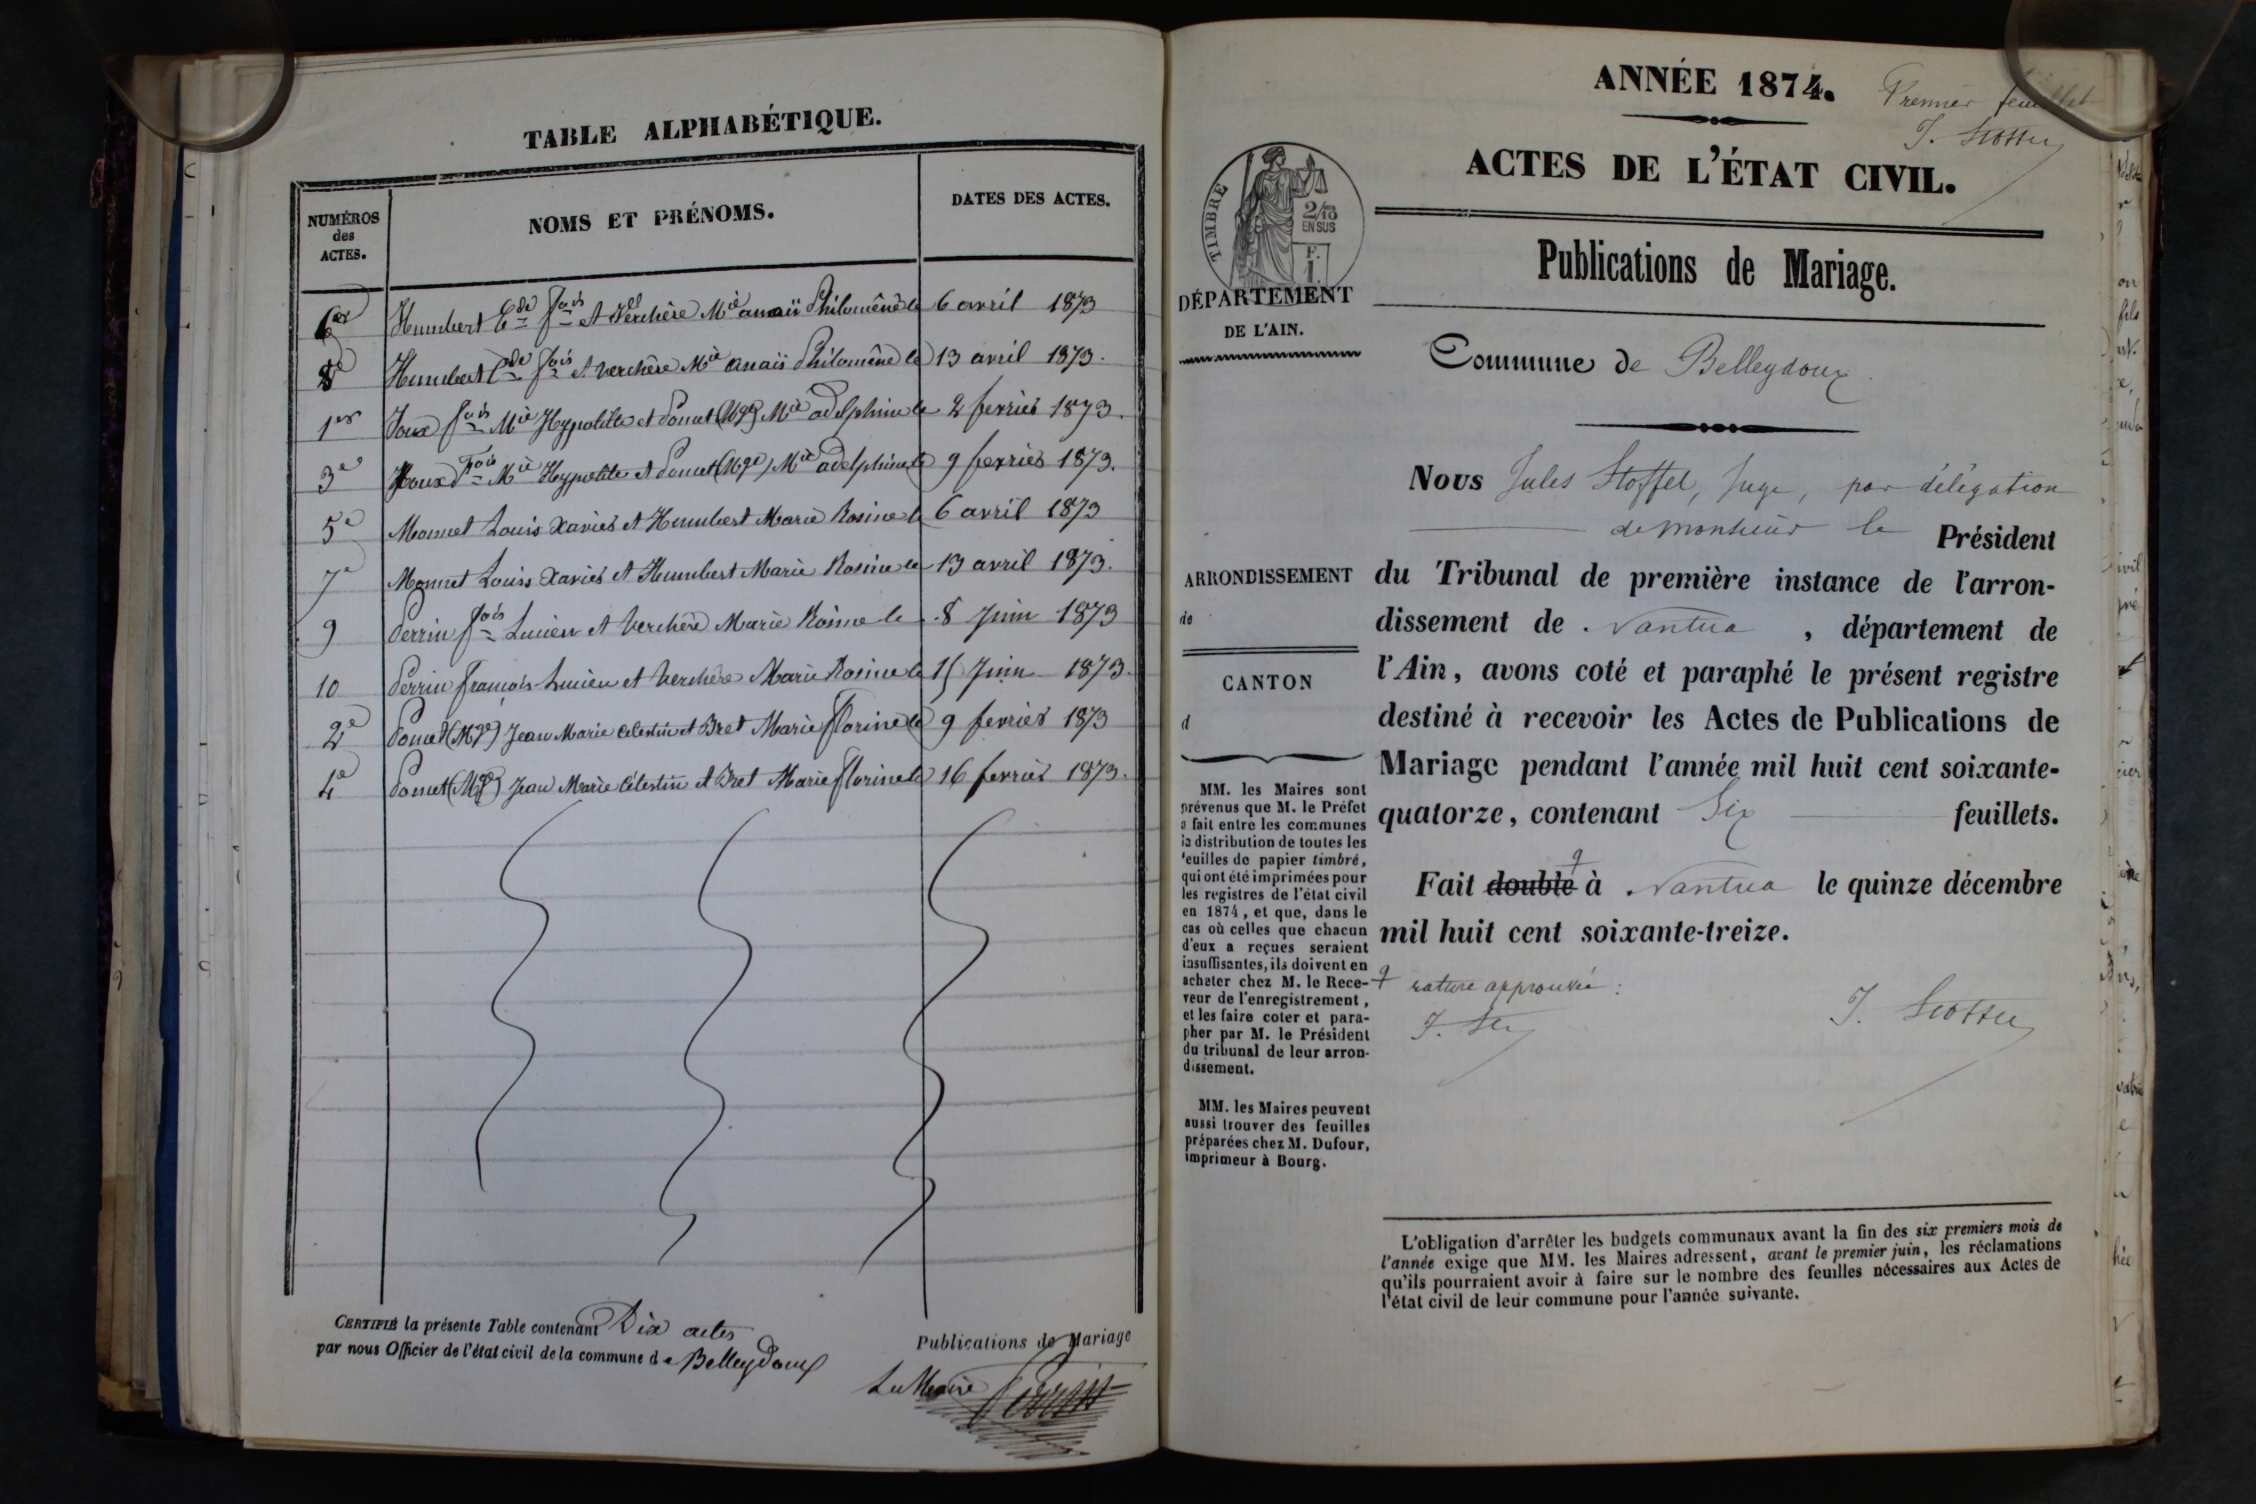 TABLE ALPHABÉTIQUE.
NUMÉROS des ACTES.
NOMS ET PRÉNOMS.
DATES DES ACTES.
6e Humbert Cde Fois et Verchère Mie anaïs Philomène le 6 avril 1873
8e Humbert Cde Fois et Verchère Mie anaïs Philomène le 13 avril 1873.
1er Joux Fois Mie Hyppolitte et Poncet (Mge) Mie adelphine le 2 fevrier 1873.
3e Joux Fois Mie Hyppolitte et Poncet (Mge) Mie adelphine le 9 fevrier 1873.
5e Monnet Louis Xavier et Humbert Marie Rosine le 6 avril 1873
7e Monnet Louis Xavier et Humbert Marie Rosine le 13 avril 1873.
9 Perrin Fois Lucien et Verchère Marie Rosine le 8 Juin 1873
10 Perrin François Lucien et Verchère Marie Rosine le 15 Juin 1873.
2e Poncet (Mge) Jean Marie Celestin et Bret Marie Florine le 9 fevrier 1873
4e Poncet (Mge) Jean Marie Célestin et Bret Marie Florine le 16 fevrier 1873.
CERTIFIÉ la présente Table contenant Dix actes
Publications de Mariage
par nous Officier de l'état civil de la commune de Belleydoux
Le Maire Perrin
ANNÉE 1874.
Premier feuillet
J. Stoffel
ACTES DE L'ÉTAT CIVIL.
TIMBRE
2/10
EN SUS
F.
1.
Publications de Mariage.
DÉPARTEMENT
DE L'AIN.
Commune de Belleydoux
Nous Jules Stoffel, Juge, par délégation
de monsieur le Président
du Tribunal de première instance de l'arron-
dissement de Nantua, département de
l'Ain, avons coté et paraphé le présent registre
destiné à recevoir les Actes de Publications de
Mariage pendant l'année mil huit cent soixante-
quatorze, contenant Six feuillets.
Fait double à Nantua le quinze décembre
mil huit cent soixante-treize.
rature approuvée :
J. St
J. Stoffel
ARRONDISSEMENT
de
CANTON
d
MM. les Maires sont
prévenus que M. le Préfet
a fait entre les communes
la distribution de toutes les
feuilles de papier timbré,
qui ont été imprimées pour
les registres de l'état civil
en 1874, et que, dans le
cas où celles que chacun
d'eux a reçues seraient
insuffisantes, ils doivent en
acheter chez M. le Rece-
veur de l'enregistrement,
et les faire coter et para-
pher par M. le Président
du tribunal de leur arron-
dissement.
MM. les Maires peuvent
aussi trouver des feuilles
préparées chez M. Dufour,
imprimeur à Bourg.
L'obligation d'arrêter les budgets communaux avant la fin des six premiers mois de
l'année exige que MM. les Maires adressent, avant le premier juin, les réclamations
qu'ils pourraient avoir à faire sur le nombre des feuilles nécessaires aux Actes de
l'état civil de leur commune pour l'année suivante.